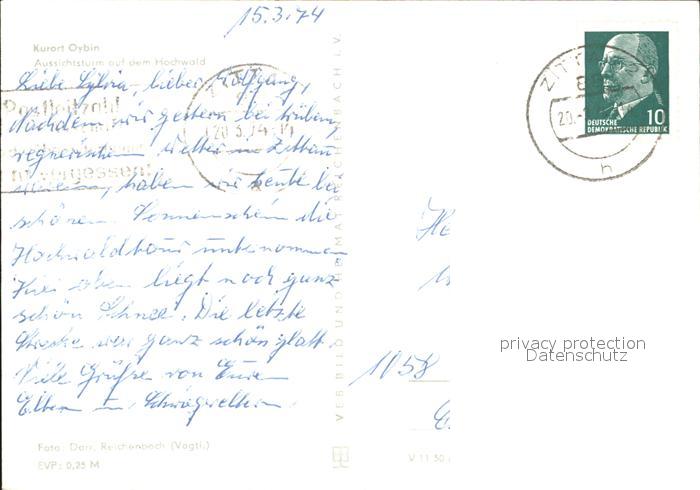 15.3.74
Kurort Oybin
Aussichtsturm auf dem Hochwald
Liebe Sylvia, lieber Wolfgang,
Nachdem wir gestern bei trüben,
regnerischem Wetter in Zittau
waren, haben wir heute bei
schönem Sonnenschein die
Hochwaldtour unternommen
Hier oben liegt noch ganz
schön Schnee. Die letzte
Strecke war ganz schön glatt.
Viele Grüße von Euren
Eltern u. Schwiegereltern
Foto: Darr, Reichenbach (Vogtl.)
EVP: 0,25 M
Postleitzahl
vergessen!
20.3.74
VEB BILD UND HEIMAT REICHENBACH I. V.
V 11 50
ZITT
20.
h
DEUTSCHE
DEMOKRATISCHE REPUBLIK
10
He
1058
privacy protection
Datenschutz